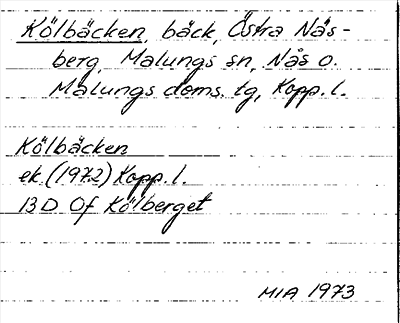 Kölbäcken, bäck, Östra Näs-
berg, Malungs sn, Nås o.
Malungs doms. lg, Kopp. l.
Kölbäcken
ek. (1972) Kopp. l.
13D Of Kölberget
MIA 1973